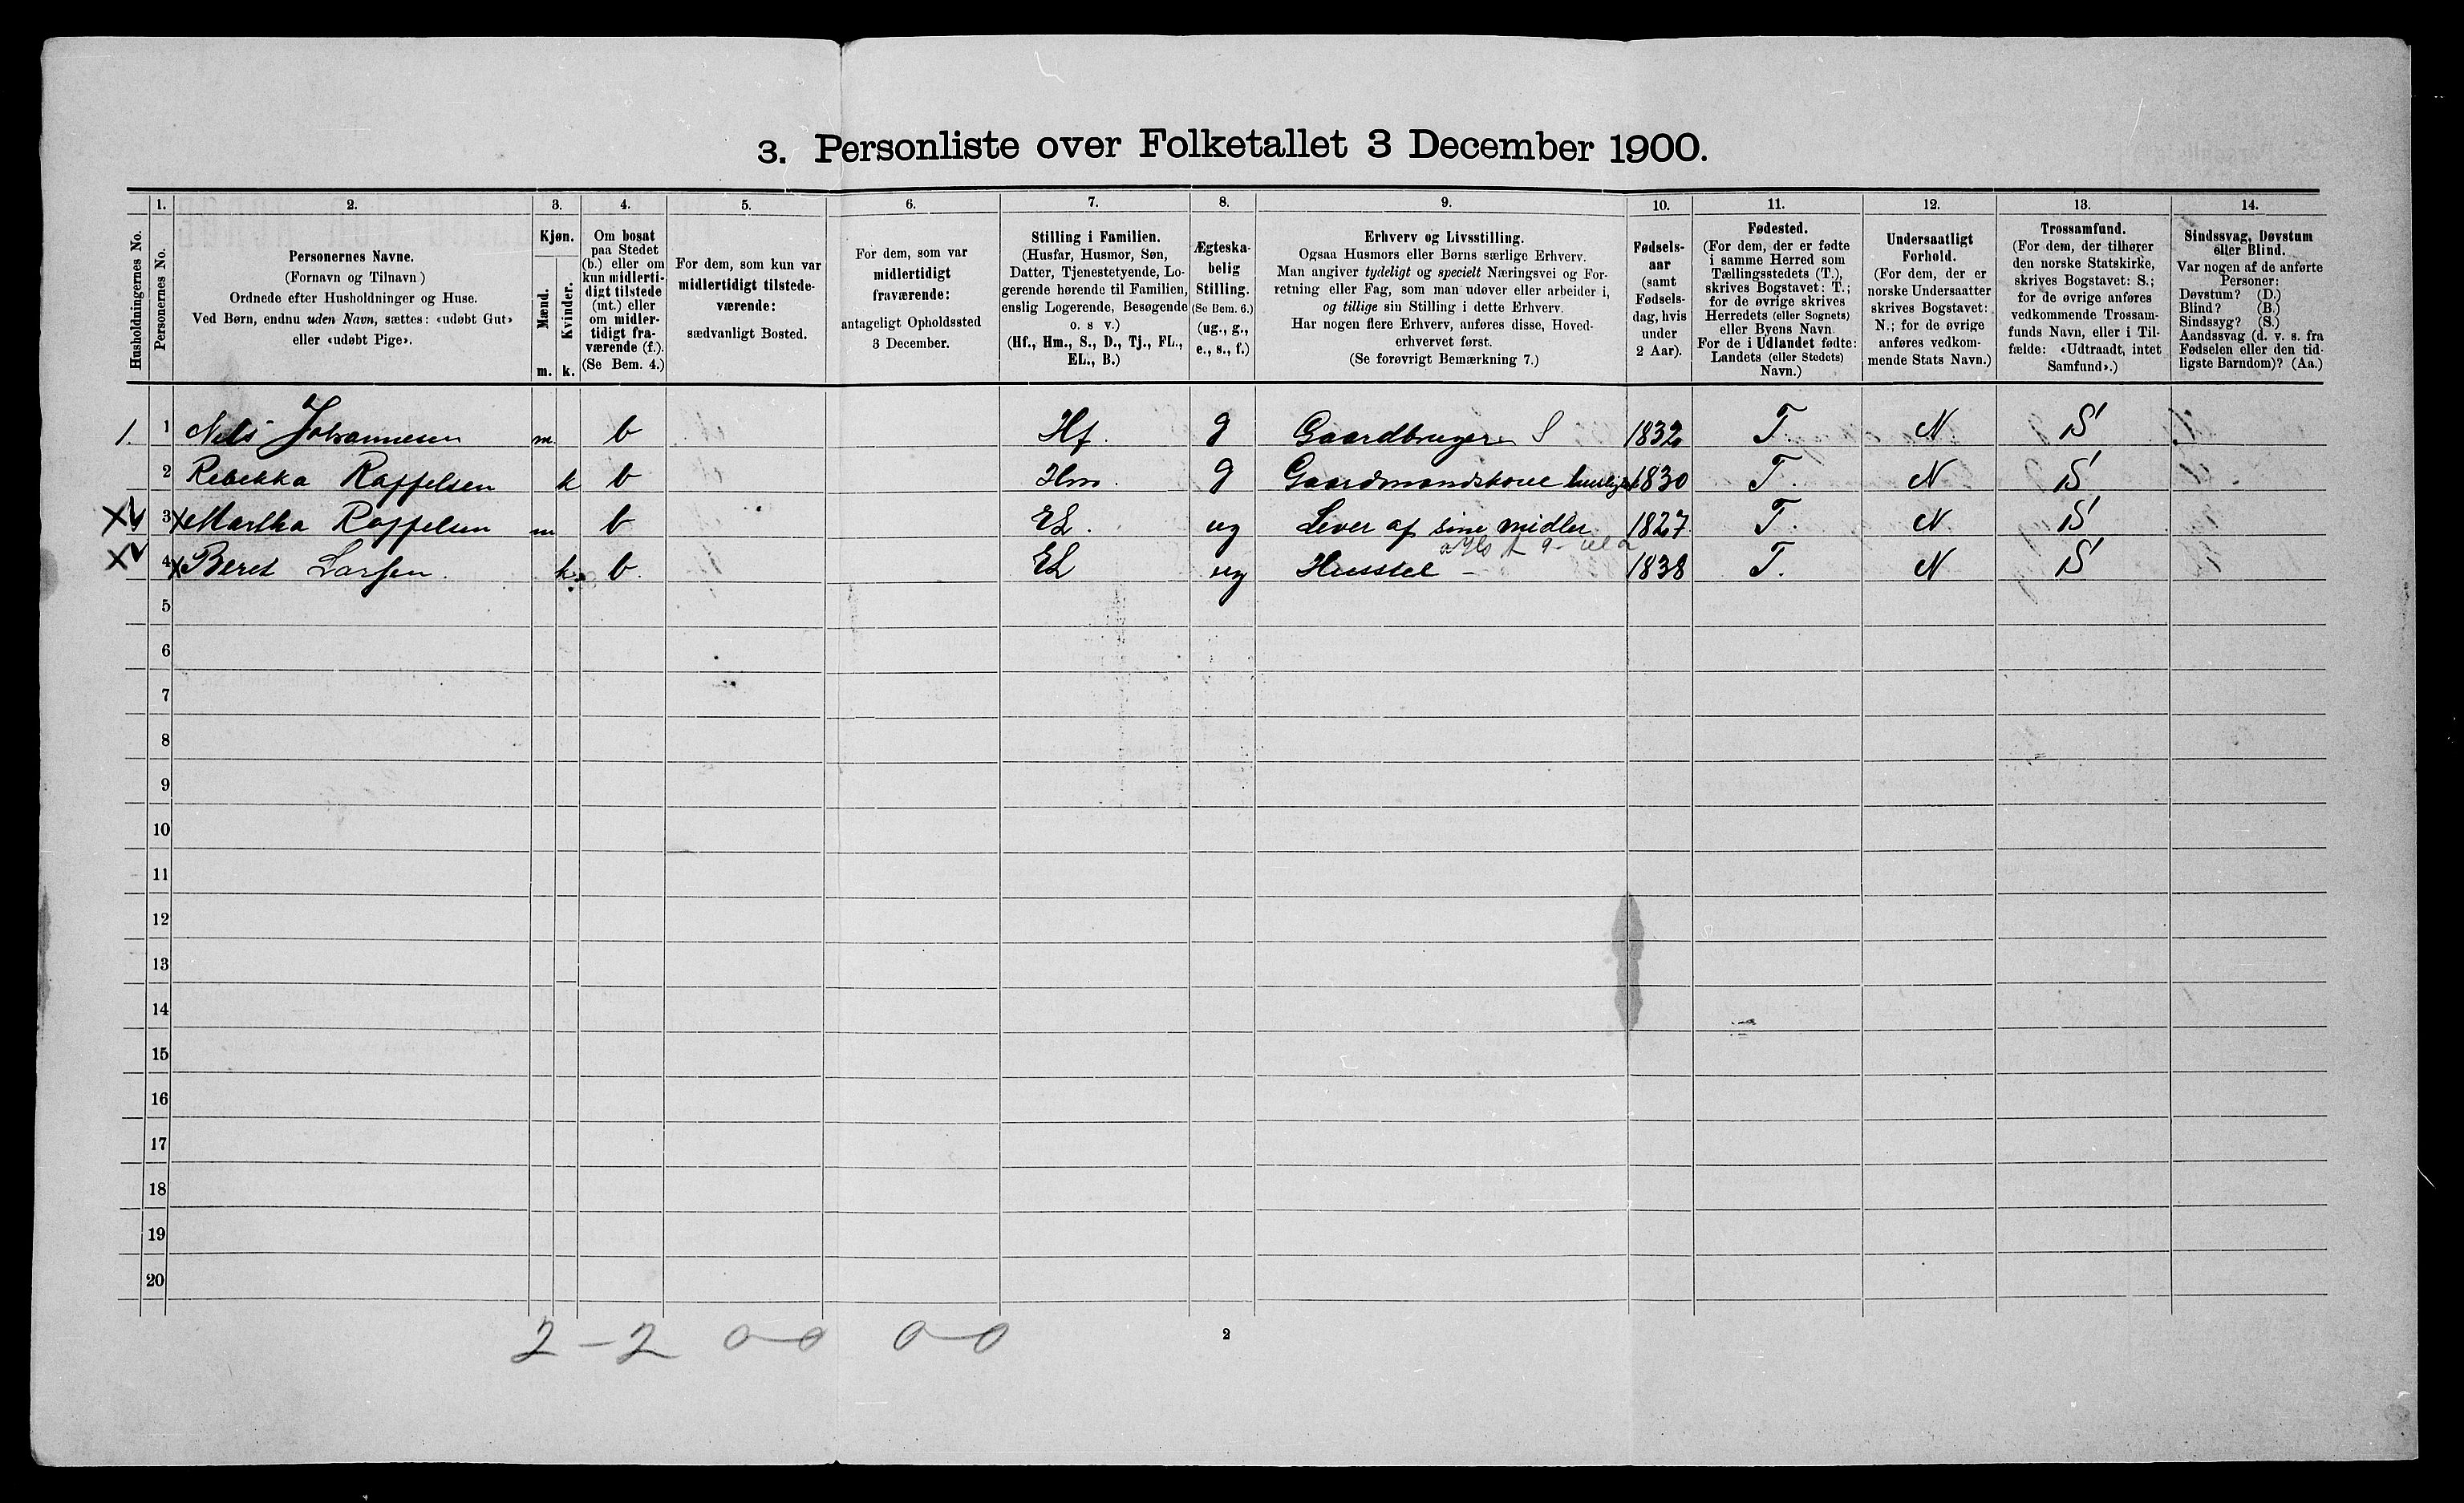 3. Personliste over Folketallet 3 December 1900.
1. 2. 3. 4. 5. 6. 7. 8. 9. 10. 11. 12. 13. 14.
Husholdningernes No.
Personernes No.
Personernes Navne.
(Fornavn og Tilnavn)
Ordnede efter Husholdninger og Huse.
Ved Børn, endnu uden Navn, sættes: «udøbt Gut»
eller «udøbt Pige».
Kjøn.
Mænd.
Kvinder.
m. k.
Om bosat
paa Stedet
(b.) eller om
kun midlerti-
digt tilstede
(mt.) eller
om midler-
tidigt fra-
værende (f.).
(Se Bem. 4.)
For dem, som kun var
midlertidigt tilstede-
værende:
sædvanligt Bosted.
For dem, som var
midlertidigt
fraværende:
antageligt Opholdssted
3 December.
Stilling i Familien.
(Husfar, Husmor, Søn,
Datter, Tjenestetyende, Lo-
gerende hørende til Familien,
enslig Logerende, Besøgende
o. s v.)
(Hf., Hm., S., D., Tj., FL.,
EL., B.)
Ægteska-
belig
Stilling.
(Se Bem. 6.)
(ug., g.,
e., s., f.)
Erhverv og Livsstilling.
Ogsaa Husmors eller Børns særlige Erhverv.
Man angiver tydeligt og specielt Næringsvei og For-
retning eller Fag, som man udøver eller arbeider i,
og tillige sin Stilling i dette Erhverv.
Har nogen flere Erhverv, anføres disse, Hoved-
erhvervet først.
(Se forøvrigt Bemærkning 7.)
Fødsels-
aar
(samt
Fødsels-
dag, hvis
under
2 Aar).
Fødested.
(For dem, der er fødte
i samme Herred som
Tællingsstedets (T.),
skrives Bogstavet: T.;
for de øvrige skrives
Herredets (eller Sognets)
eller Byens Navn
For de i Udlandet fødte:
Landets (eller Stedets)
Navn.)
Undersaatligt
Forhold.
(For dem, der er
norske Undersaatter
skrives Bogstavet:
N.; for de øvrige
anføres vedkom-
mende Stats Navn.)
Trossamfund.
(For dem, der tilhører
den norske Statskirke,
skrives Bogstavet: S.;
for de øvrige anføres
vedkommende Trossam-
funds Navn, eller i Til-
fælde: «Udtraadt, intet
Samfund».)
Sindssvag, Døvstum
eller Blind.
Var nogen af de anførte
Personer:
Døvstum? (D.)
Blind? (B.)
Sindssyg? (S.)
Aandssvag (d. v. s. fra
Fødselen eller den tid-
ligste Barndom)? (Aa.)
1. 1 Nels Johannesen m b Hf. g Gaardbruger S 1832 T. N S
2 Rebekka Raffelsen k b Hm. g Gaardmandskone 1830 T. N S
X 3 X Martha Raffelsen m b EL. ug Lever af sine midler 1827 T. N S
X 4 X Beret Larsen k b EL ug Husstel 1838 T. N S
5
6
7
8
9
10
11
12
13
14
15
16
17
18
19
20
2 – 2 0–0 0–0
2